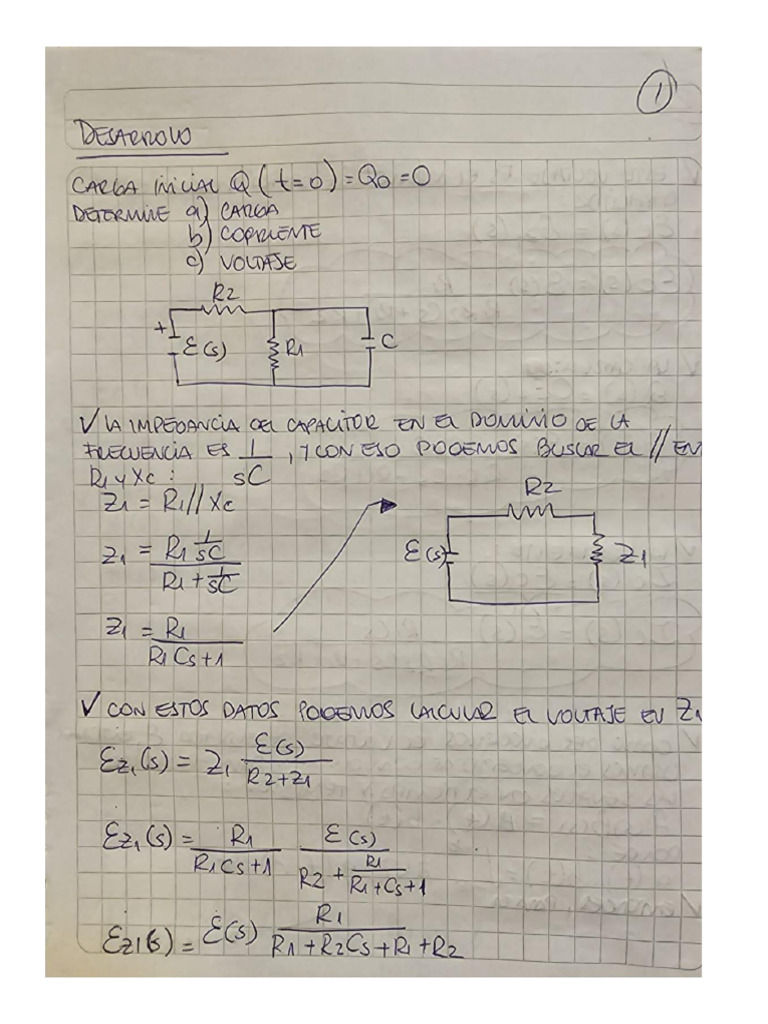 1
DESARROLLO
CARGA INICIAL Q(t=0)=Q0=0
DETERMINE a) CARGA
b) CORRIENTE
c) VOLTAJE
R2
+
Ɛ(s)
R1
C
✓ LA IMPEDANCIA DEL CAPACITOR EN EL DOMINIO DE LA
FRECUENCIA ES 1/sC, Y CON ESO PODEMOS BUSCAR EL // EN
R1 y Xc :
Z1 = R1//Xc
R2
Ɛ(s)
Z1
Z1 = (R1 1/sC)/(R1 + 1/sC)
Z1 = R1/(R1Cs+1)
✓ CON ESTOS DATOS PODEMOS CALCULAR EL VOLTAJE EN Z1
Ɛz1(s) = Z1 Ɛ(s)/(R2+Z1)
Ɛz1(s) = R1/(R1Cs+1) Ɛ(s)/(R2 + R1/(R1+Cs+1))
Ɛz1(s) = Ɛ(s) R1/(R1+R2Cs+R1+R2)